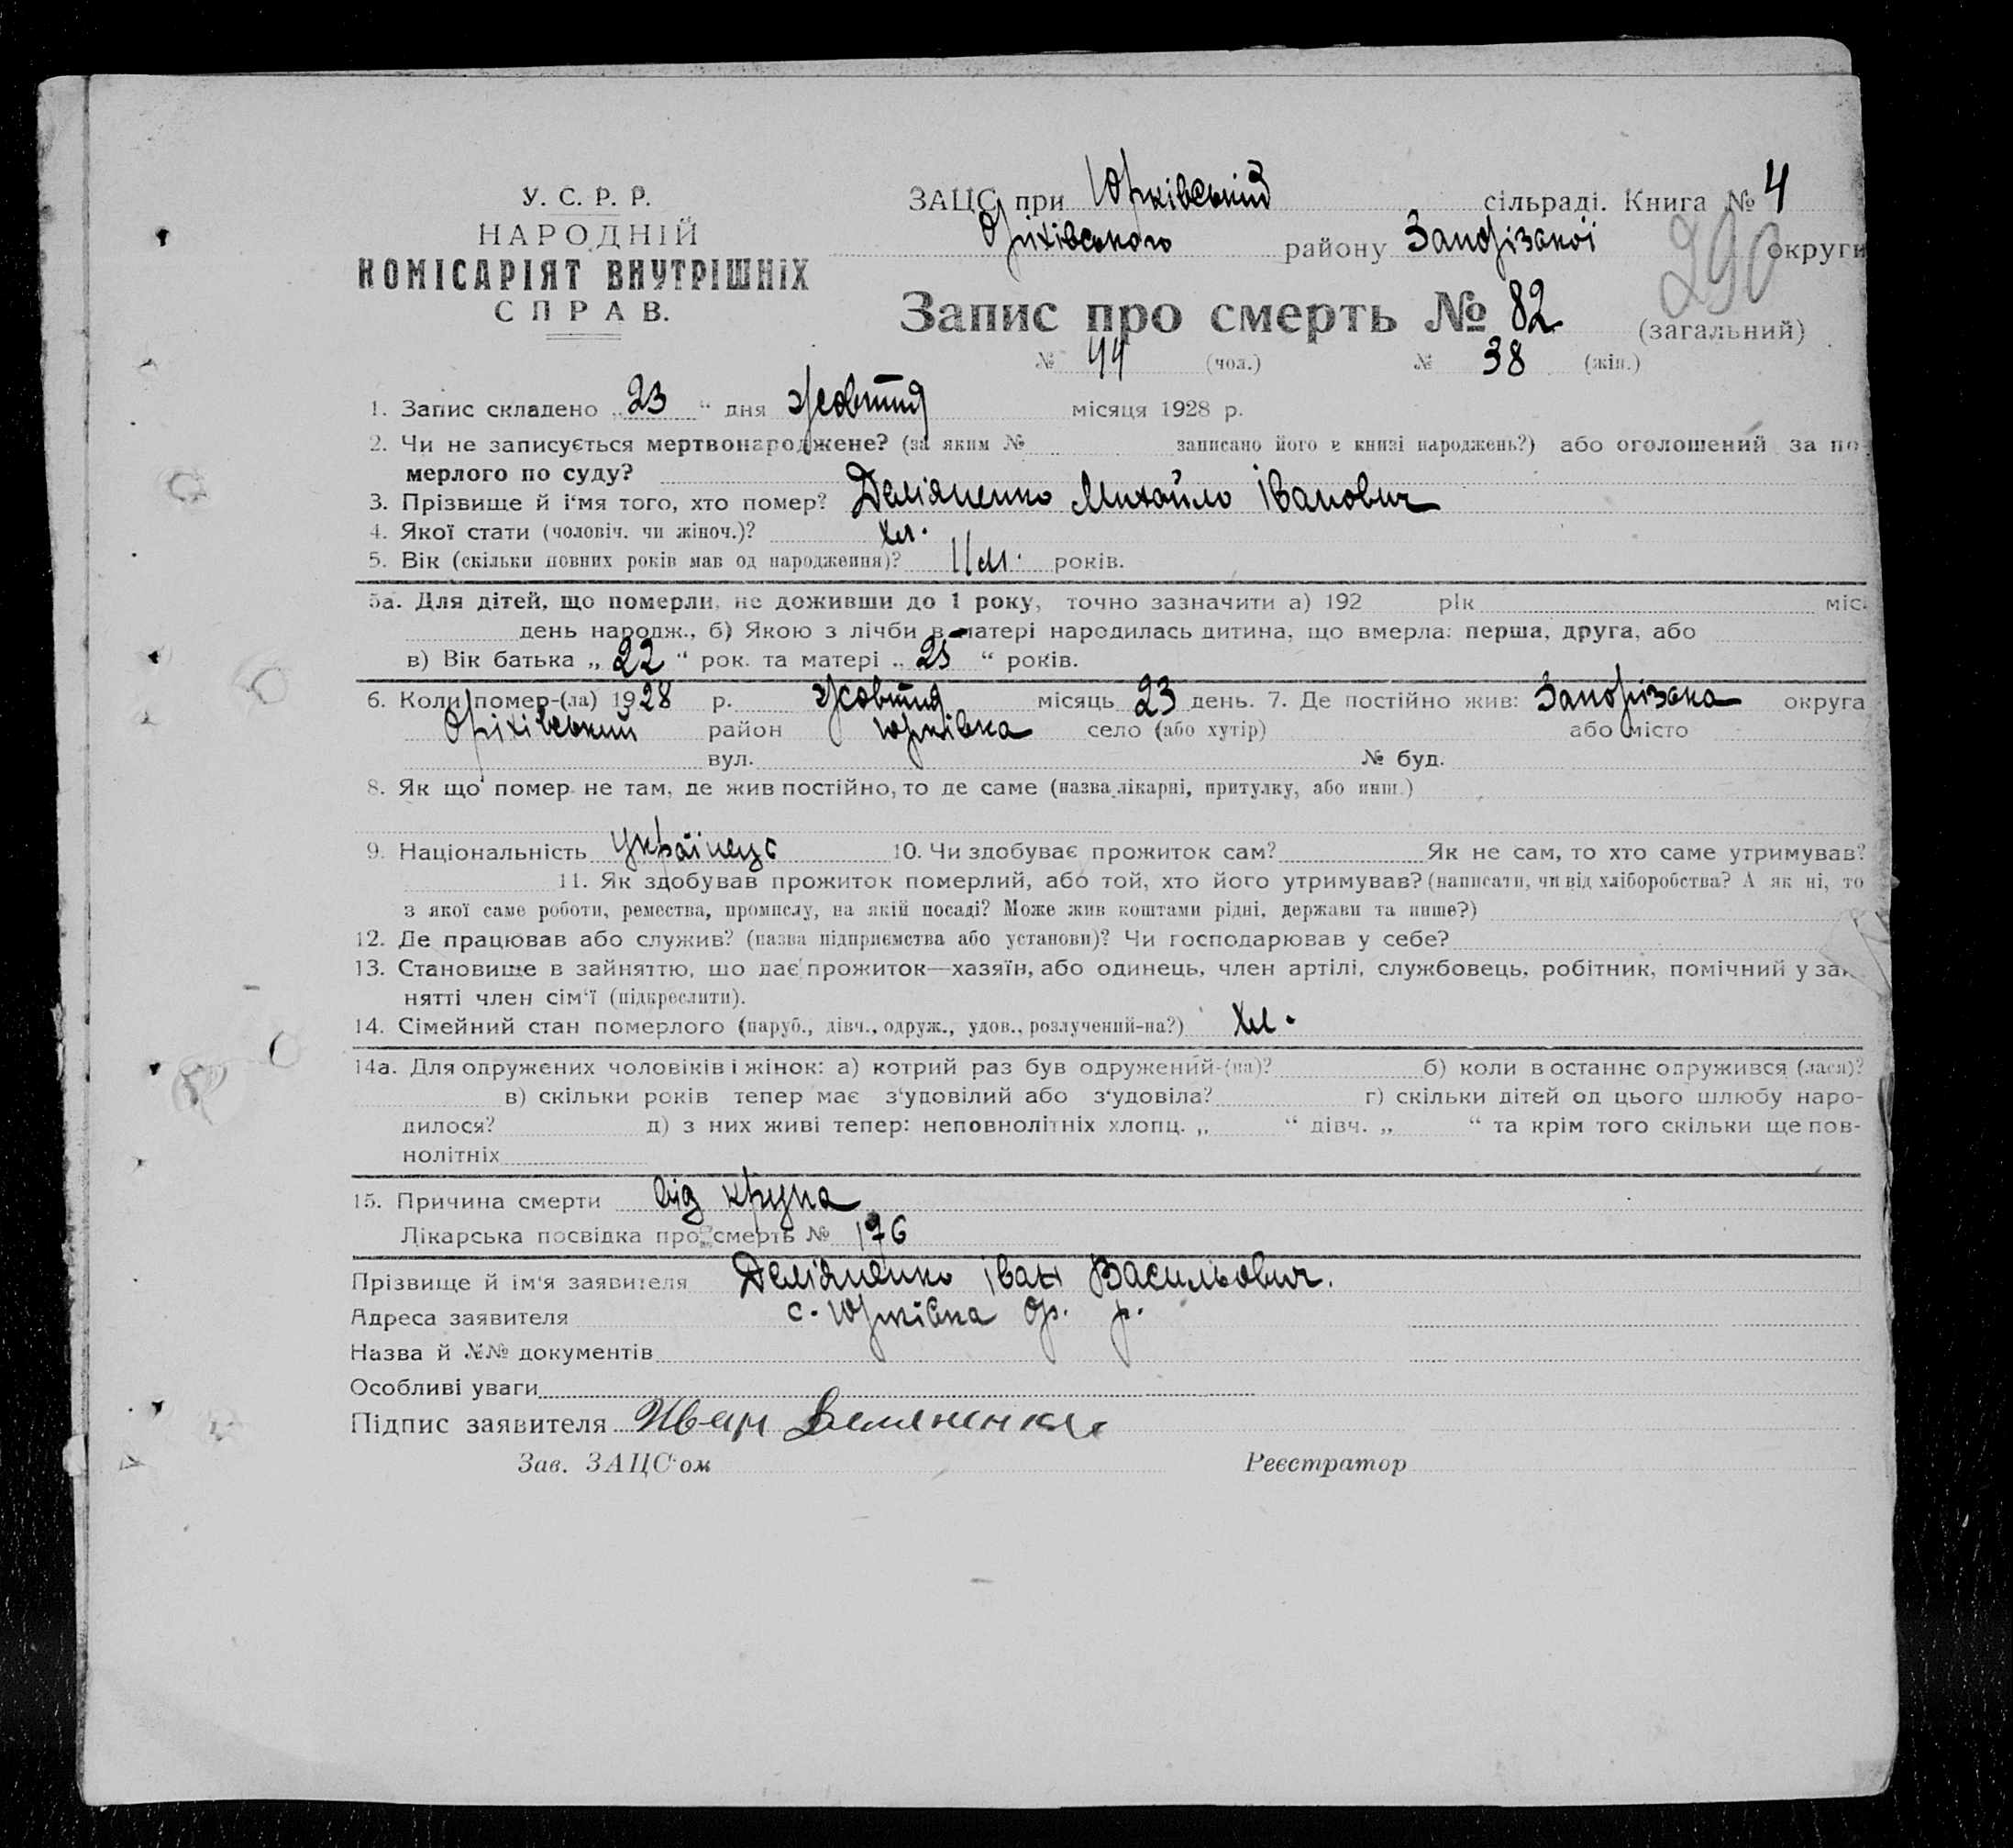 У. С. Р. Р.
НАРОДНІЙ
КОМІСАРІЯТ ВНУТРІШНІХ
СПРАВ.
ЗАЦС при Юрківській сільраді. Книга № 4
Оріхівського району Запорізької округи
290
Запис про смерть № 82 (загальний)
№ 44 (чол.) № 38 (жін.)
1. Запис складено „ 23 “ дня жовтня місяця 1928 р.
2. Чи не записується мертвонароджене? (за яким № записано його в книзі народжень?) або оголошений за по
мерлого по суду?
3. Прізвище й і'мя того, хто помер? Деміяненко Михайло Іванович
4. Якої стати (чоловіч. чи жіноч.)? хл.
5. Вік (скільки повних років мав од народження)? 11 м. років.
5а. Для дітей, що померли, не доживши до 1 року, точно зазначити а) 192 рік міс.
день народж., б) Якою з лічби в матері народилась дитина, що вмерла: перша, друга, або
в) Вік батька „ 22 “ рок. та матері „ 25 “ років.
6. Коли помер-(ла) 1928 р. жовтня місяць 23 день. 7. Де постійно жив: Запорізька округа
Оріхівський район Юрківка село (або хутір) або місто
вул. № буд.
8. Як що помер не там, де жив постійно, то де саме (назва лікарні, притулку, або инш.)
9. Національність українець 10. Чи здобуває прожиток сам? Як не сам, то хто саме утримував?
11. Як здобував прожиток померлий, або той, хто його утримував? (написати, чи від хліборобства? А як ні, то
з якої саме роботи, ремества, промислу, на якій посаді? Може жив коштами рідні, держави та инше?)
12. Де працював або служив? (назва підприємства або установи)? Чи господарював у себе?
13. Становище в зайняттю, що дає прожиток—хазяїн, або одинець, член артілі, службовець, робітник, помічний у зай-
нятті член сім'ї (підкреслити).
14. Сімейний стан померлого (паруб., дівч., одруж., удов., розлучений-на?) хл.
14а. Для одружених чоловіків і жінок: а) котрий раз був одружений-(на)? б) коли в останнє одружився (лася)?
в) скільки років тепер має з'удовілий або з'удовіла? г) скільки дітей од цього шлюбу наро-
дилося? д) з них живі тепер: неповнолітніх хлопц. „ “ дівч. „ “ та крім того скільки ще пов-
нолітніх
15. Причина смерти від крупа
Лікарська посвідка про смерть № 176
Прізвище й ім'я заявителя Деміяненко Іван Васильович.
Адреса заявителя с. Юрківка Ор. р.
Назва й №№ документів
Особливі уваги
Підпис заявителя Иван Демяненко
Зав. ЗАЦС'ом Реєстратор